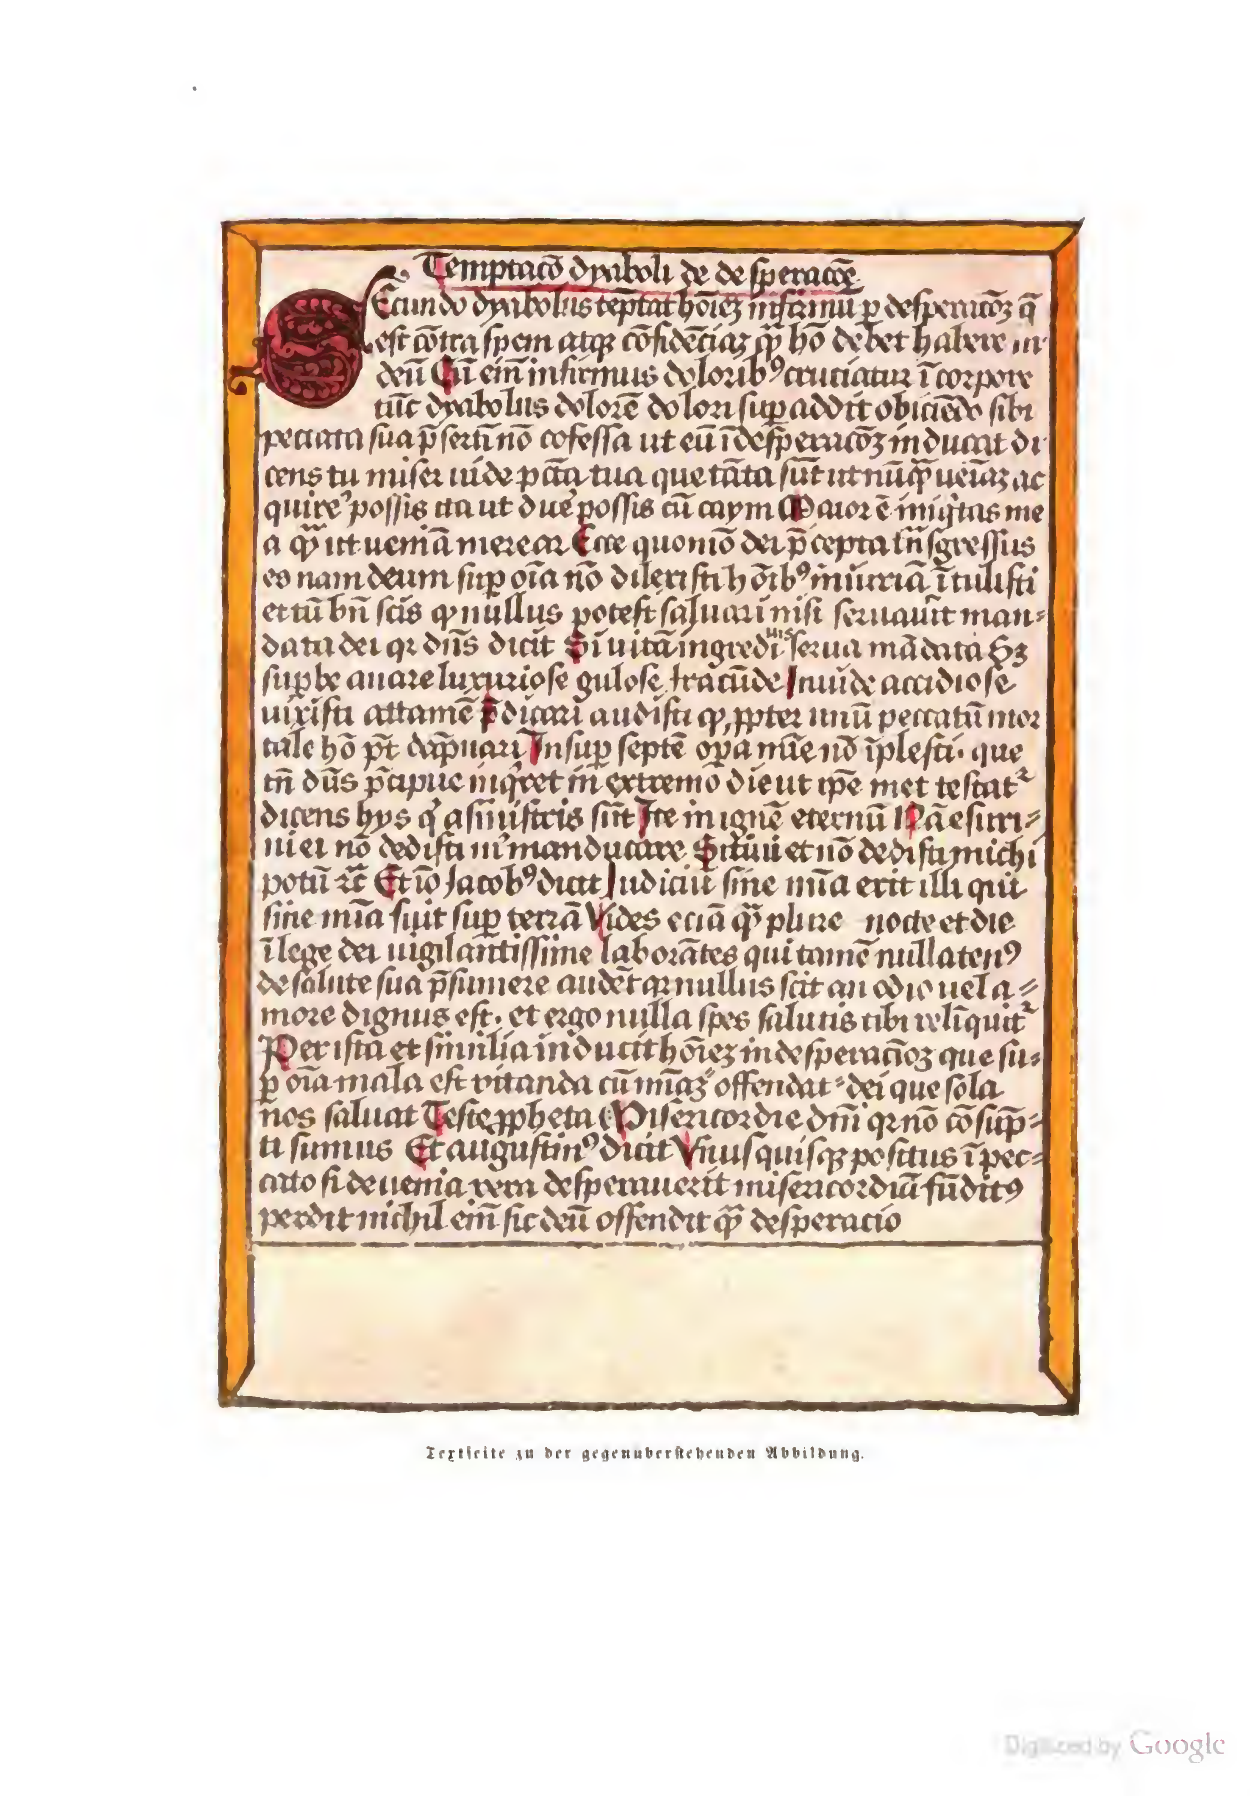 Temptacō dyaboli de desperacōe
SEcundo dyabolus tēptat hoīeꝫ infirmū ꝑ desperacōꝫ q̄
est cōtra spem atqꝫ cōfidēciaꝫ qͣꝫ hō debet habere in
deū Cū eīm infirmus dolorib⁹ cruciatur ī corpore
tūc dyabolus dolorē dolori suꝑaddit obiciēdo sibi
peccata sua p̄sertī nō cōfessa ut eū ī desperacōꝫ inducat di
cens tu miser uide pctā tua que tāta sūt ut nūqͣꝫ ueniāꝫ ac
quire᷒ possis ita ut dice᷒ possis cū caym Maior ē īniqͥtas me
a qͣꝫ ut ueniā merear Ecce quomō dei p̄cepta trāsgressus
es nam deum suꝑ oīa nō dilexisti hoīb⁹ iniuriā ītulisti
et tn̄ bn̄ scis ꝙ nullus potest saluari nisi seruauīt man⸗
data dei qꝛ dn̄s dicit Si uitā ingredi uis serua mādata Sꝫ
suꝑbe auare luxuriose gulose Iracūde Inuide accidiose
uixisti attamē P̄dicari audisti ꝙ ꝓpter unū peccatū mor
tale hō pt̄ dāpnari Insuꝑ septē oꝑa mīe nō īplesti. que
tn̄ dn̄s p̄cipue inqͥret in extremo die ut ip̄e met testatᷣ
dicens hys qͥ a sinistris sūt Ite in ignē eternū Nā esuri⸗
ui et nō dedisti mͥ manducare Sitiui et nō dedisti michi
potū ⁊c̄ Et iō Jacob⁹ dicit Iudiciū sine mīa erit illi qui
sine mīa fuit suꝑ terrā Vides eciā qͣꝫ plure nocte et die
ī lege dei uigilantissime laborātes qui tamē nullaten⁹
de salute sua p̄sumere audēt qꝛ nullus scit an odio uel a⸗
more dignus est. et ergo nulla spes salutis tibi relīquitᷣ
Per ista et similia inducit hoīeꝫ in desperaciōꝫ que su⸗
ꝑ oīa mala est vitanda cū mīaꝫ offendat dei que sola
nos saluat Teste ꝓpheta Misericordie dn̄i qꝛ nō cōsūp⸗
ti sumus Et augustin⁹ dicit Vnusquisqꝫ positus ī pec⸗
cato si de uenia vera desperauerit misericordiā fūdit⁹
perdit nichil eīm sic deū offendit qͣꝫ desperacio
Textseite zu der gegenüberstehenden Abbildung.
Digitized by Google